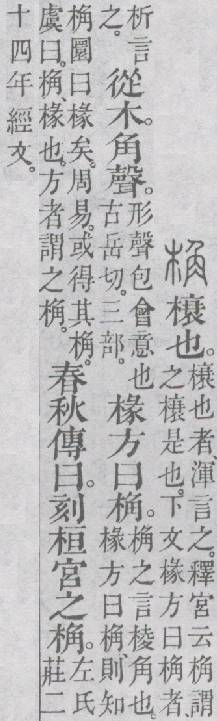 桷榱也。
榱也者、渾言之。釋宮云桷謂
之榱是也。下文椽方曰桷者、
析言
之。
從木。角聲。
形聲包會意也
古岳切。三部。
椽方曰桷。
桷之言棱角也。
椽方曰桷則知
桷圜曰椽矣。周易。或得其桷。
虞曰。桷、椽也。方者謂之桷。
春秋傳曰。刻桓宮之桷。
左氏
莊二
十四年經文。